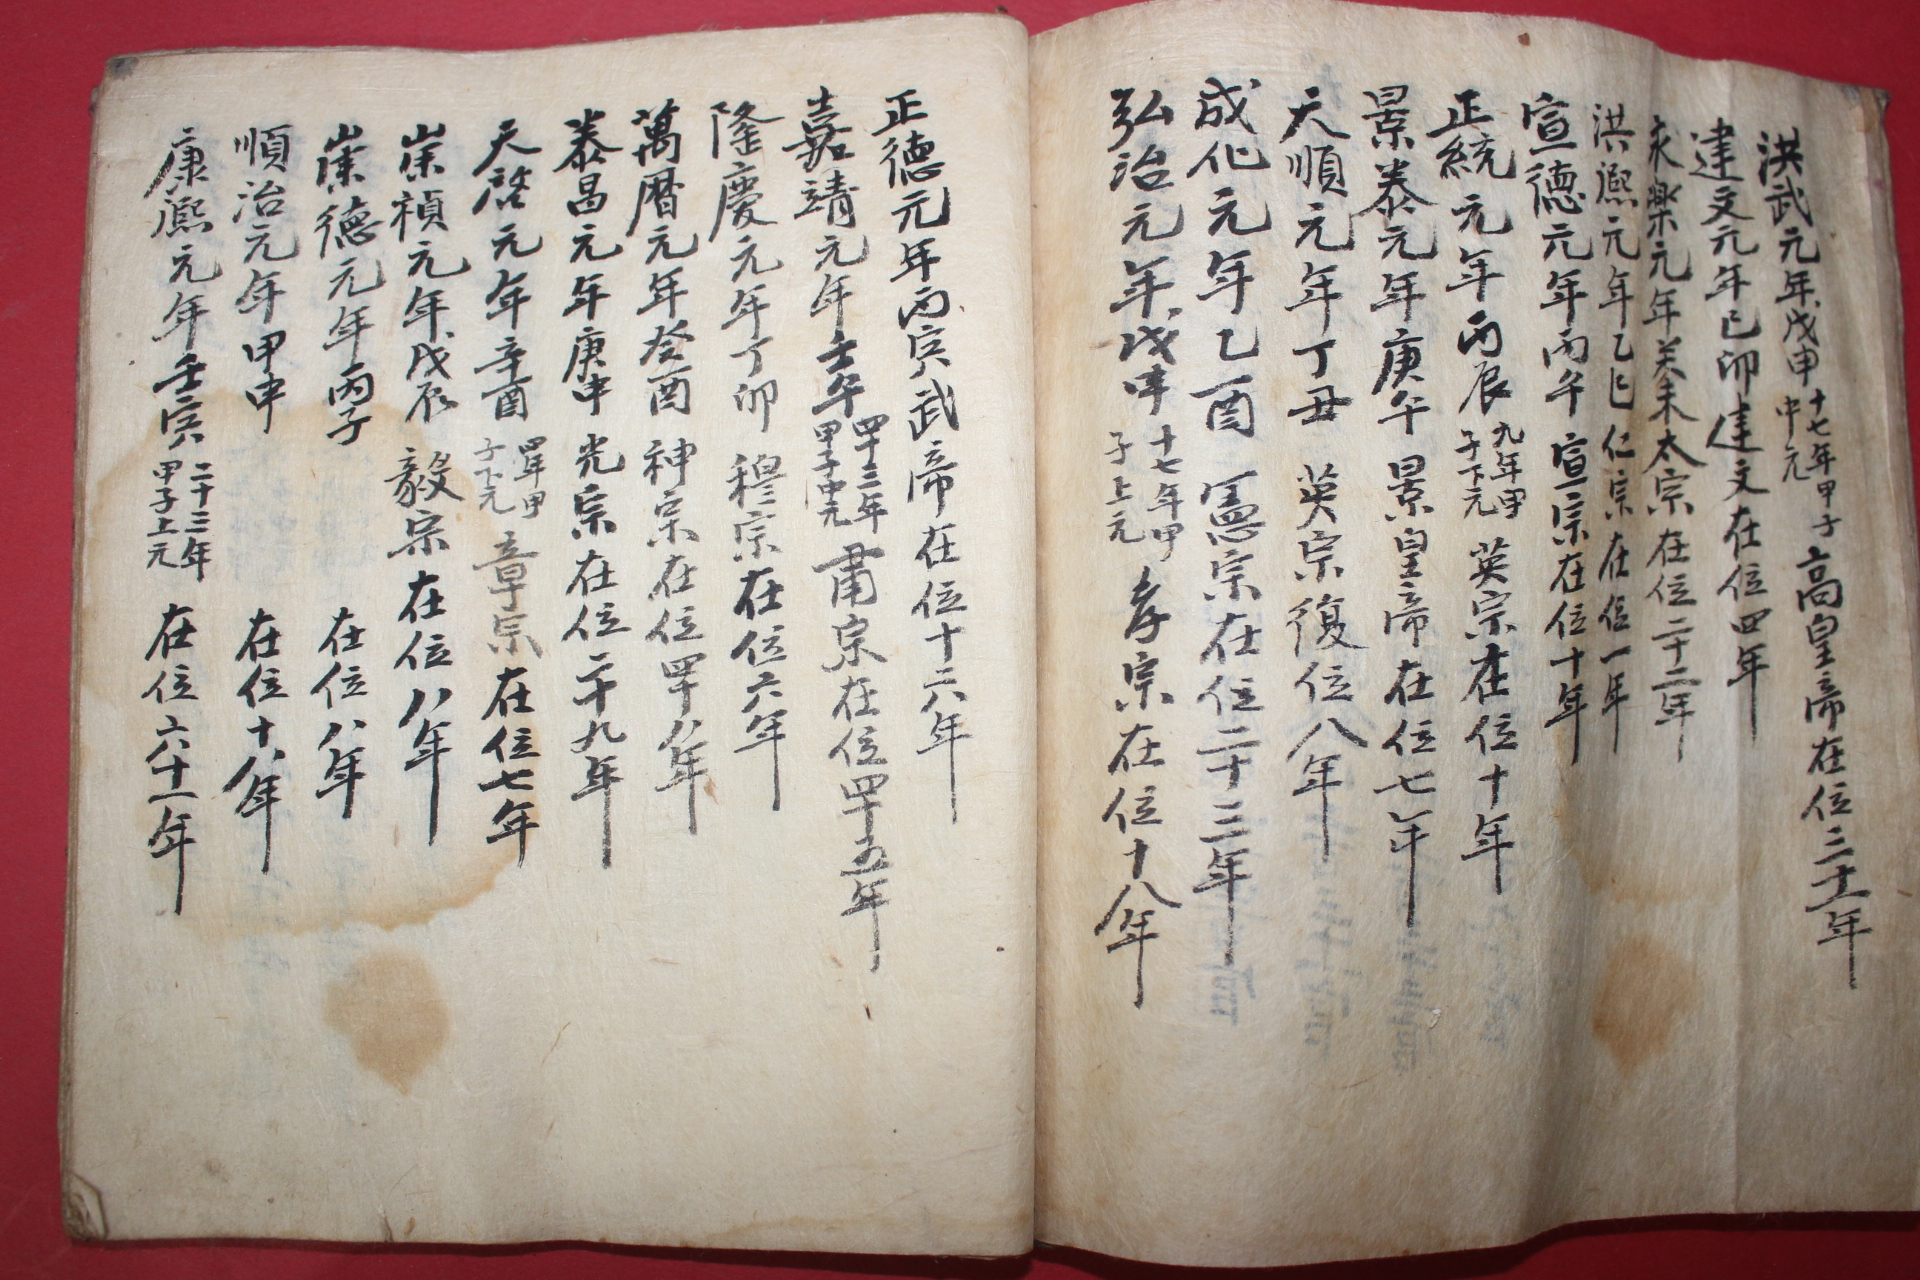 洪武元年戊申 十七年甲子中元 高皇帝在位三十一年
建文元年己卯建文在位四年
永樂元年癸未太宗在位二十二年
洪熙元年乙巳仁宗在位一年
宣德元年丙午宣宗在位十年
正統元年丙辰 九年甲子下元 英宗在位十年
景泰元年庚午景皇帝在位七年
天順元年丁丑英宗復位八年
成化元年乙酉憲宗在位二十三年
弘治元年戊申 十七年甲子上元 孝宗在位十八年
正德元年丙寅武帝在位十六年
嘉靖元年壬午 四十三年甲子中元 肅宗在位四十五年
隆慶元年丁卯穆宗在位六年
萬曆元年癸酉神宗在位四十八年
泰昌元年庚申光宗在位二十九年
天啓元年辛酉 四年甲子下元 章宗在位七年
崇禎元年戊辰毅宗在位八年
崇德元年丙子在位八年
順治元年甲申在位十八年
康熙元年壬寅 二十三年甲子上元 在位六十一年